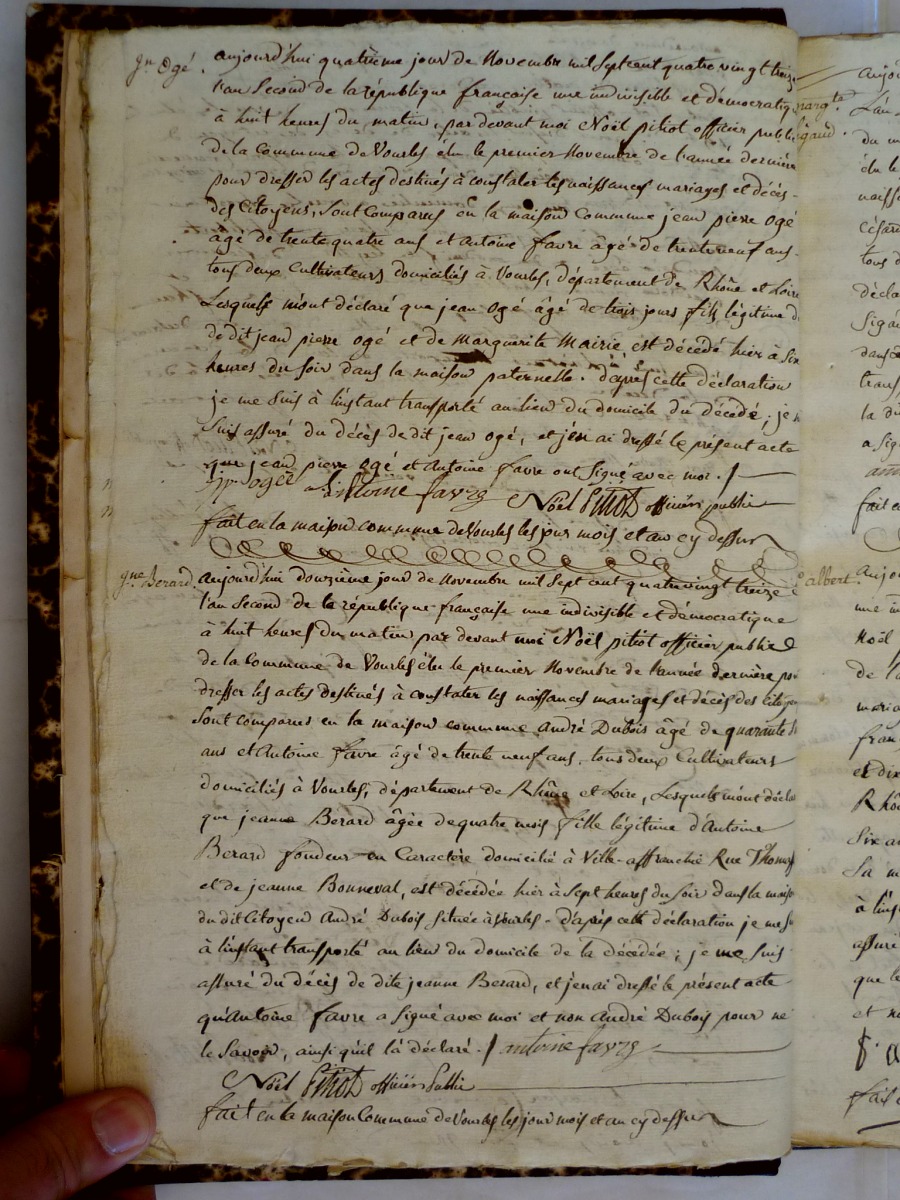 jn Ogé. aujourd'hui quatrième jour de Novembre mil Sept cent quatre vingt treize
l'an Second de la république françoise une indivisible et démocratiq
à huit heures du matin, par devant moi Noël pitiot officier public
de la Commune de Vourles élu le premier Novembre de l'année dernière
pour dresser les actes destinés à constater les naissances mariages et décès
des Citoyens, Sont Comparus en la maison Commune jean pierre ogé
âgé de trente quatre ans et Antoine favre âgé de trente neuf ans
tous deux Cultivateurs domiciliés à Vourles, département de Rhône et Loire
Lesquels m'ont déclaré que jean ogé âgé de trois jours fils légitime d
de dit jean pierre ogé et de Marguerite Mairie, est décédé hier à Six
heures du Soir dans la maison paternelle. d'après cette déclaration
je me Suis à l'instant transporté au lieu du domicile du décédé, je
Suis assuré du décès de dit jean ogé, et j'en ai dressé le présent acte
que jean pierre ogé et Antoine favre ont Signé avec moi. /
jp ogée Antoine favre Noël Pitiot officier public
fait en la maison commune de Vourles les jour mois et an cy dessus
jne Berard. aujourd'hui douzième jour de Novembre mil Sept cent quatrevingt treize
l'an Second de la république françoise une indivisible et démocratique
à huit heures du matin par devant moi Noël pitiot officier public
de la Commune de Vourles élu le premier Novembre de l'année dernière po
dresser les actes destinés à constater les naissances mariages et décès des Citoyen
Sont comparus en la maison commune André Dubois âgé de quarante
ans et Antoine favre âgé de trente neuf ans, tous deux Cultivateurs
domiciliés à Vourles, département de Rhône et Loire, Lesquels m'ont décla
que jeanne Berard âgée de quatre mois fille légitime d'Antoine
Berard fondeur en Caractère domicilié à Ville-affranchie Rue Thomas
et de jeanne Bonneval, est décédée hier à Sept heures du Soir dans la maiso
du dit Citoyen André Dubois Située à Vourles - d'après cette déclaration je me S
à l'instant transporté au lieu du domicile de la décédée; je me Suis
assuré du décès de dite jeanne Berard, et j'en ai dressé le présent acte
qu'Antoine favre a Signé avec moi et non André Dubois pour ne
le Savoir, ainsi qu'il l'a déclaré. / antoine favre
Noël Pitiot officier Public
fait en la maison Commune de Vourles les jour mois et an cy dessus
albert.
aujo
L'an
du m
élu le
naiss
César
tous d
décla
Signé
dans
trans
la d
a Sig
fait e
aujo
une i
Noël
de l'a
maria
fran
et dix
Rhô
Six a
Sa m
à l'ins
assuré
que le
et n
fait